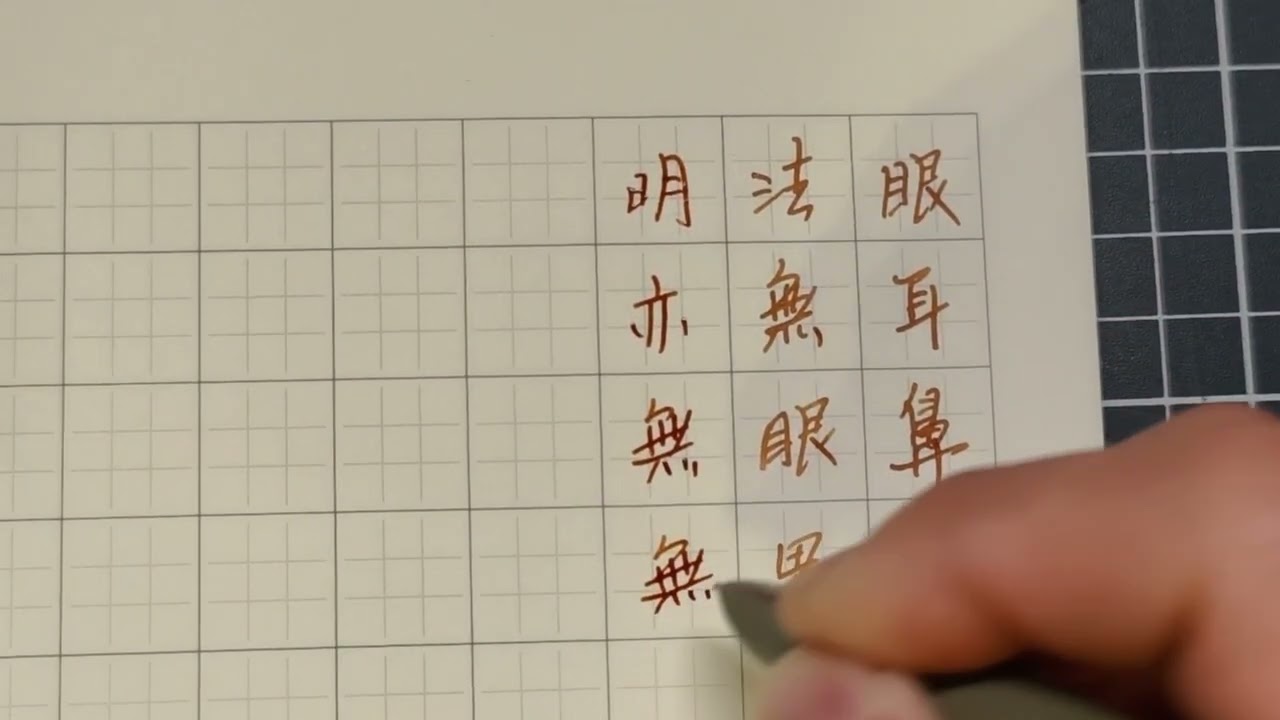 眼耳鼻
法無眼
明亦無無